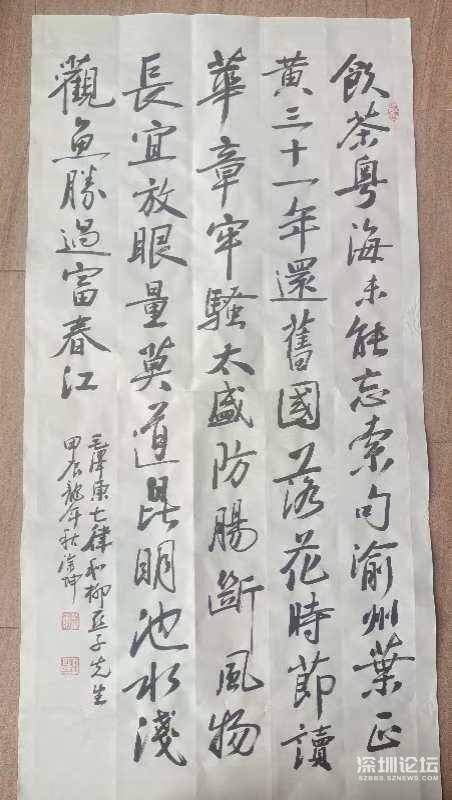 飲茶粵海未能忘索句渝州葉正
黄三十一年還舊國落花時節讀
華章牢騷太盛防腸斷風物
長宜放眼量莫道昆明池水淺
觀魚勝過富春江
毛澤東七律和柳亞子先生
甲辰龍年秋
深圳论坛
SZBBS.SZNEWS.COM